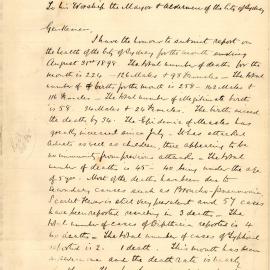 To his Worship the Mayor & Aldermen of the City of Sydney
Gentlemen,
I have the honor to submit report on
the health of the City of Sydney for the month ending
August 31st 1898. The total number of deaths for the
month is 224 - 126 Males & 98 Females - The total
number of births for month is 258 - 142 Males &
116 Females - The total number of illegitimate births
is 58 34 Males & 24 Females. The births exceed
the deaths by 34. The Epidemic of Measles has
greatly increased since July. It has attacked
Adults as well as children, there appearing to be
no immunity from previous attacks - The total
number of deaths is 45 - 40 being under the age
of 5 yrs. Most of the deaths have been due to
secondary causes such as Broncho-pneumonia
Scarlet Fever is still very prevalent and 57 cases
have been reported resulting in 3 deaths - The
total number of cases of Diphtheria reported is 4
no deaths - The total number of cases of Typhoid
reported is 2. 1 death. This month has been
and the death rate is nearly